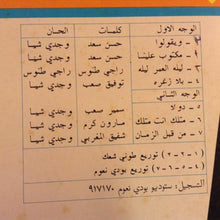 الوجه الاول كلمات الحان
١ - ويقولوا حسن سعد وجدي شيا
٢ - مكتوب علينا حسن سعد وجدي شيا
٣ - ليله العمر ليله راجي طنوس راجي طنوس
٤ - بلا زغره توفيق صعب وجدي شيا
الوجه الثاني
٥ - دولا سمير صعب وجدي شيا
٦ - مثلك انت مثلك مارون كرم وجدي شيا
٧ - من قبل الزمان شفيق المغربي وجدي شيا
(١-٢-٣) توزيع طوني شعك
(٤-٥-٦-٧) توزيع بودي نعوم
التسجيل: ستوديو بودي نعوم ٩١٧١٧٠